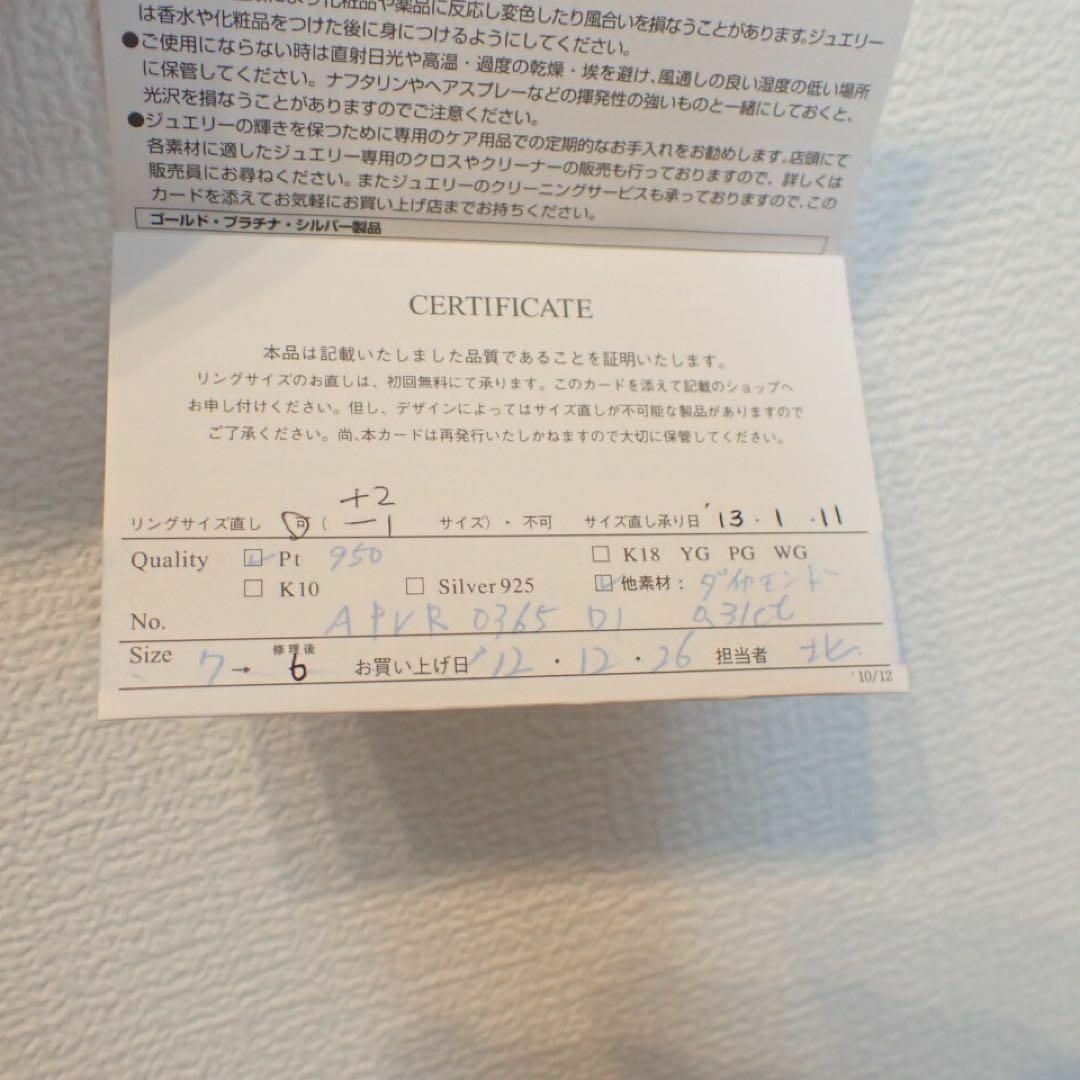 化粧品や薬品に反応し変色したり風合いを損なうことがあります。ジュエリー
は香水や化粧品をつけた後に身につけるようにしてください。
●ご使用にならない時は直射日光や高温・過度の乾燥・埃を避け、風通しの良い湿度の低い場所
に保管してください。ナフタリンやヘアスプレーなどの揮発性の強いものと一緒にしておくと、
光沢を損なうことがありますのでご注意ください。
●ジュエリーの輝きを保つために専用のケア用品での定期的なお手入れをお勧めします。店頭にて
各素材に適したジュエリー専用のクロスやクリーナーの販売も行っておりますので、詳しくは
販売員にお尋ねください。またジュエリーのクリーニングサービスも承っておりますので、この
カードを添えてお気軽にお買い上げ店までお持ちください。
ゴールド・プラチナ・シルバー製品
CERTIFICATE
本品は記載いたしました品質であることを証明いたします。
リングサイズのお直しは、初回無料にて承ります。このカードを添えて記載のショップへ
お申し付けください。但し、デザインによってはサイズ直しが不可能な製品がありますので
ご了承ください。尚、本カードは再発行いたしかねますので大切に保管してください。
+2
リングサイズ直し 可 ( -1 サイズ)・不可 サイズ直し承り日 '13・1・11
Quality ☑ Pt 950 □ K18 YG PG WG
□ K10 □ Silver925 ☑ 他素材: ダイヤモンド
No. 0365 D1 0.31ct
Size 7 → 修理後 6 お買い上げ日 '12・12・26 担当者 北
'10/12